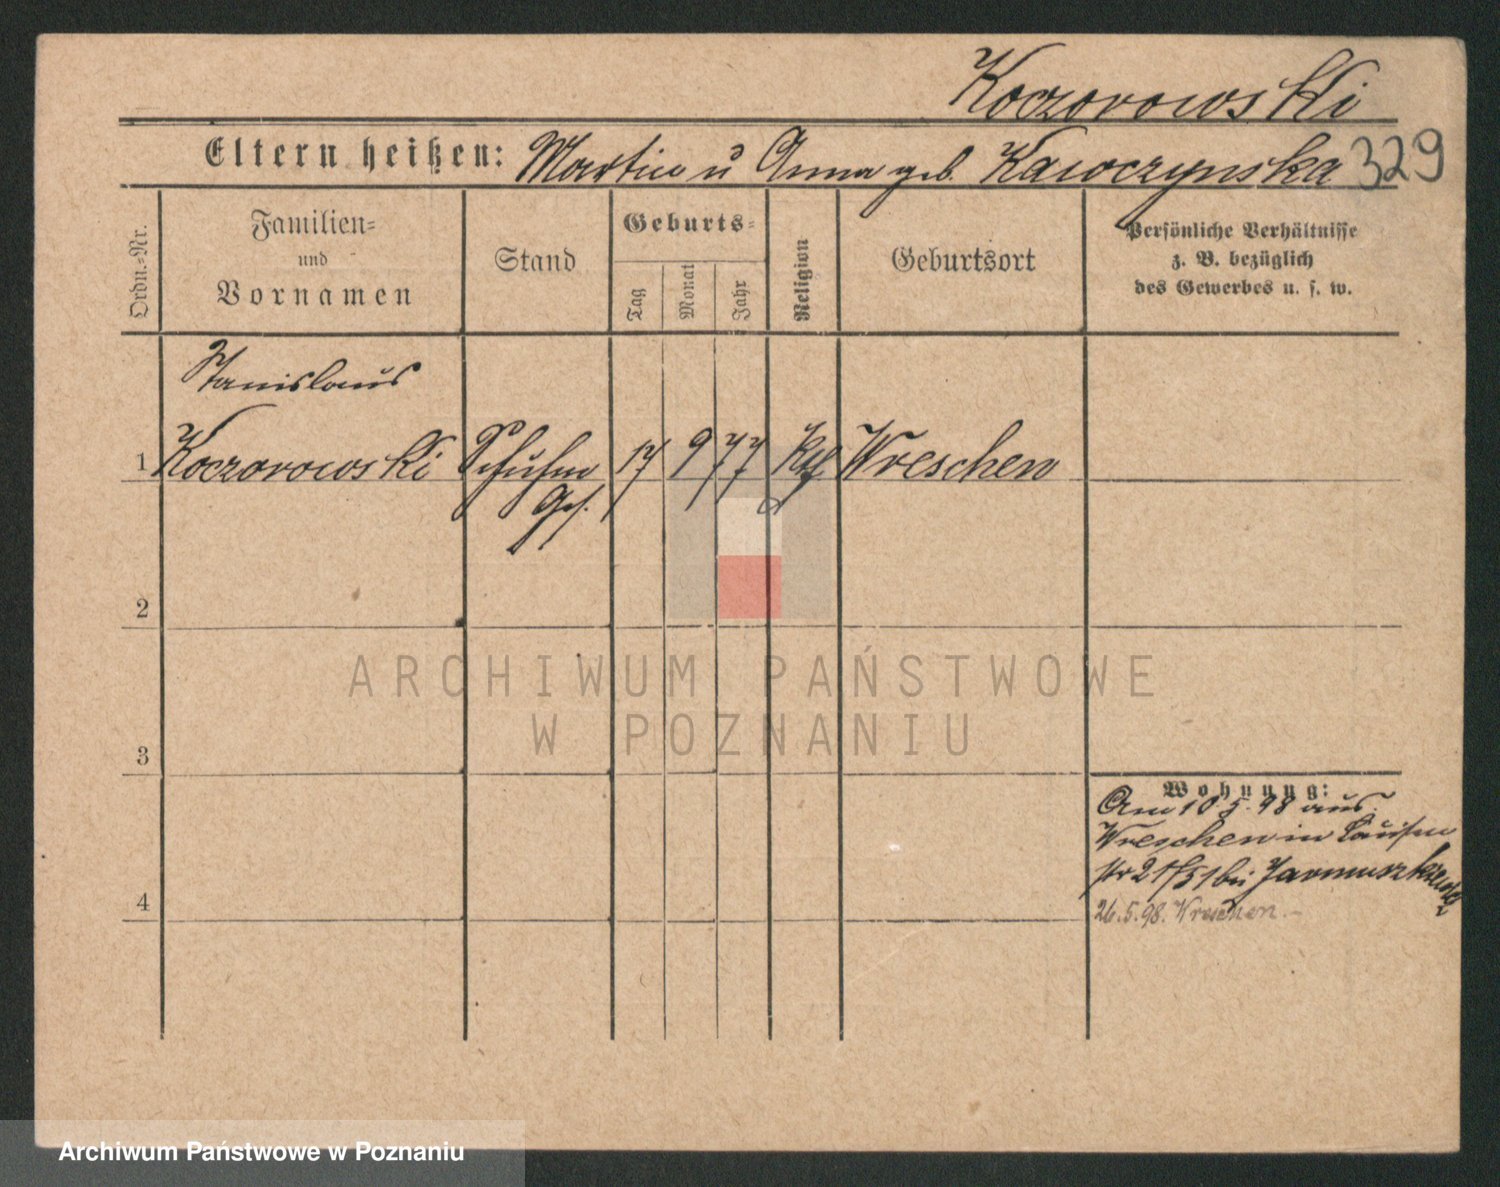 Koczorowski
Eltern heißen: Martin u Anna geb. Kawczynska 329
Ordn.-Nr.
Familien-
und
Vornamen
Stand
Geburts-
Tag
Monat
Jahr
Religion
Geburtsort
Persönliche Verhältnisse
z. B. bezüglich
des Gewerbes u. s. w.
Stanislaus
1 Koczorowski Schuhm 17 9 77 Kth Wreschen
Ges.
2
3
4
Wohnung:
Am 10 5. 98 aus
Wreschen in Louisen
str 21/51 bei
26.5.98. Wreschen.
ARCHIWUM PAŃSTWOWE
W POZNANIU
Archiwum Państwowe w Poznaniu